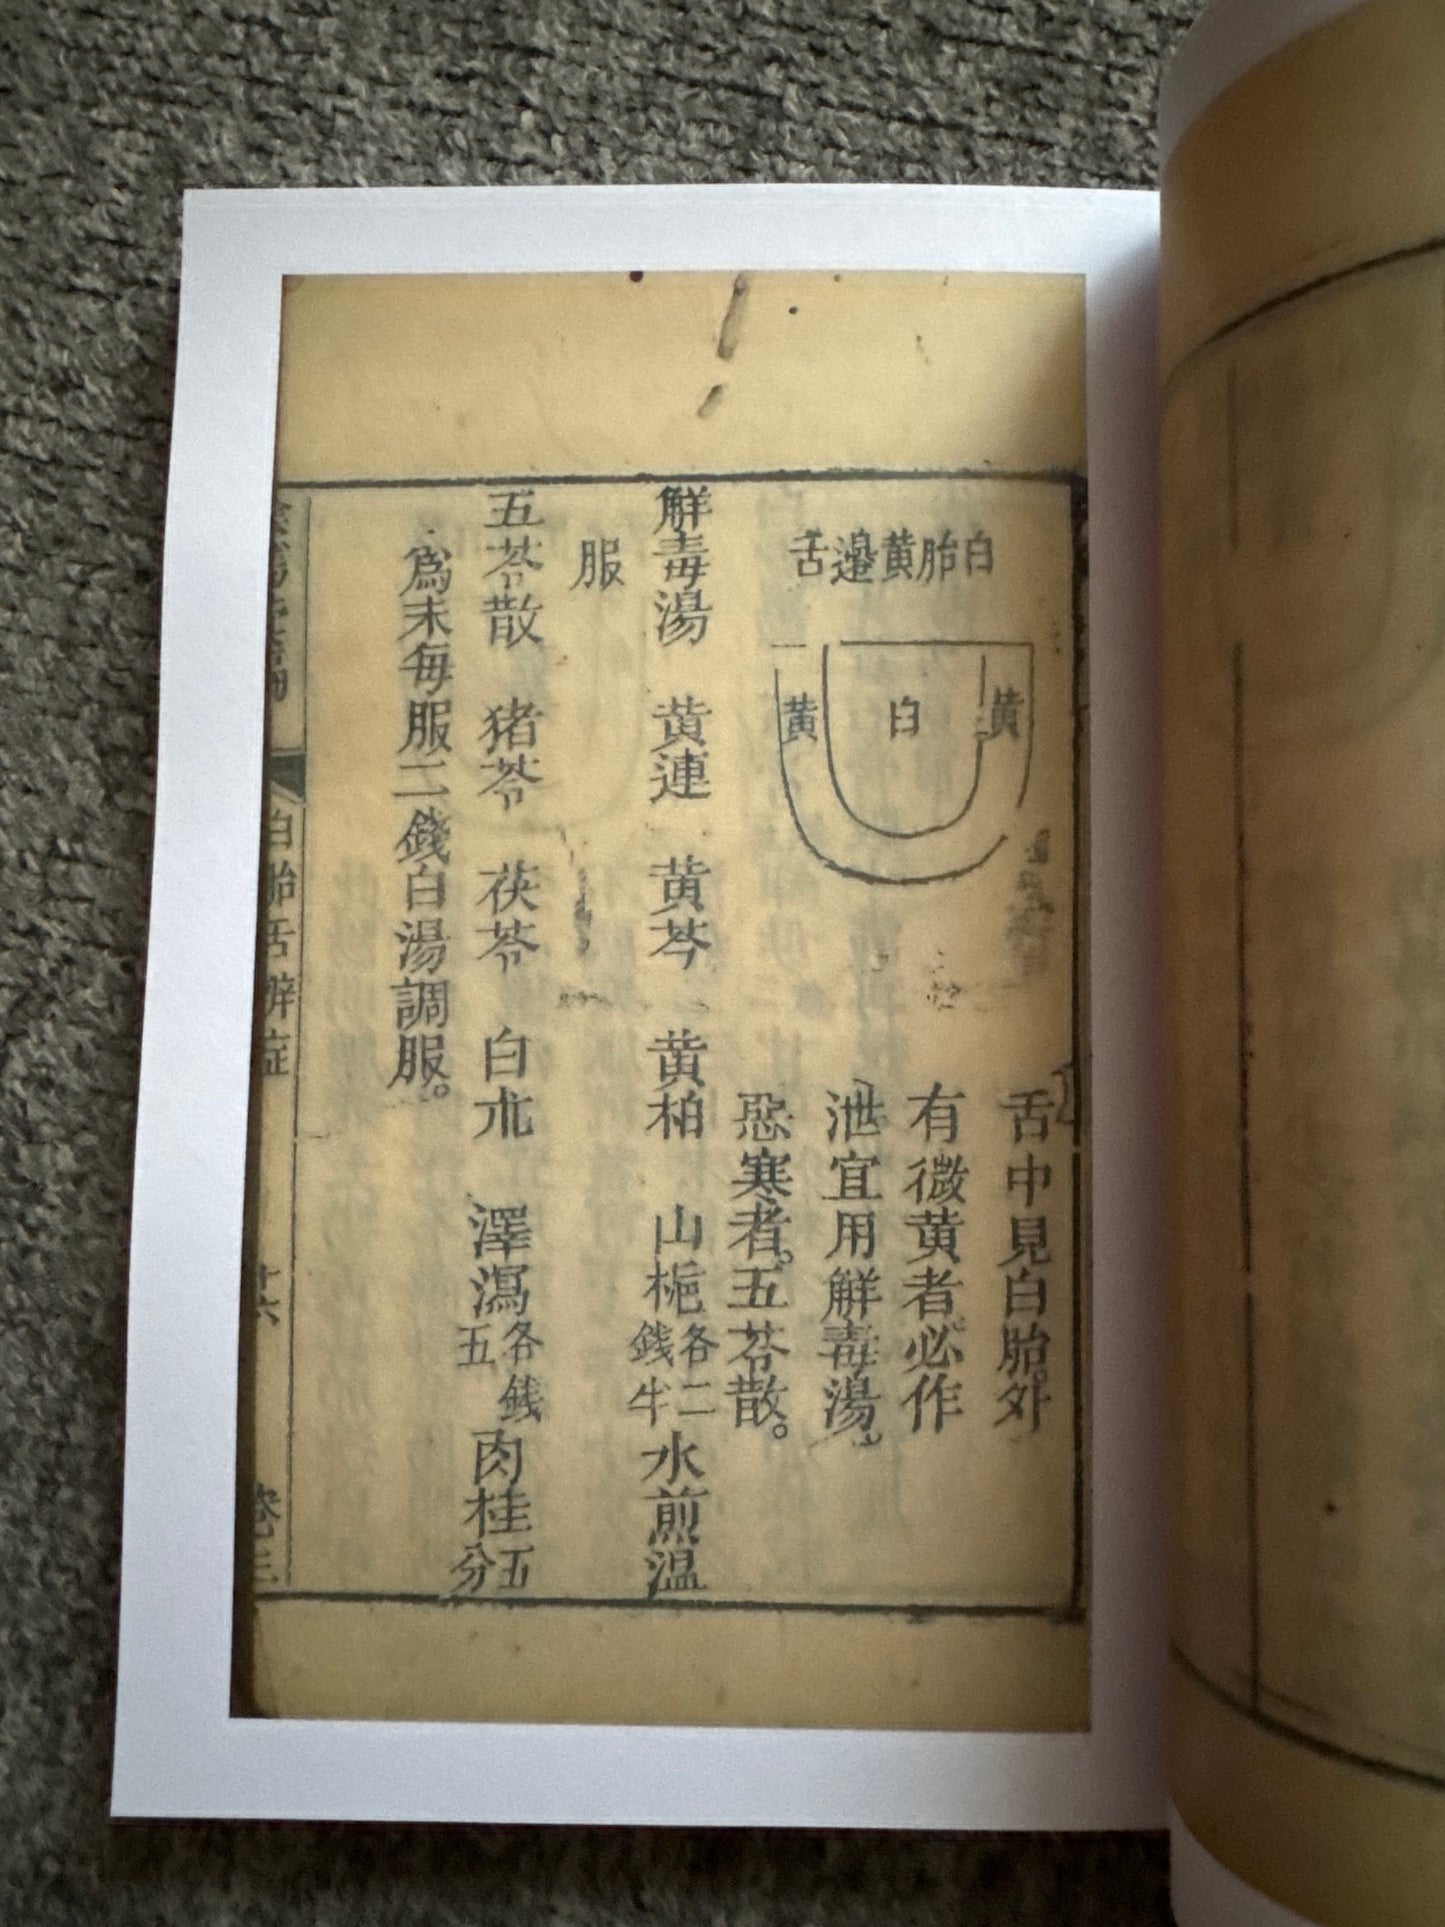 白胎黄邉舌
黄
白
黄
舌中見白胎外
有微黄者必作
泄宜用解毒湯。
惡寒者。五苓散。
解毒湯 黄連 黄芩 黄柏 山梔各二錢半水煎温
服
五苓散 猪苓 茯苓 白朮 澤瀉各五錢肉桂五分
為末每服二錢白湯調服。
白胎舌辨症
十六
卷三